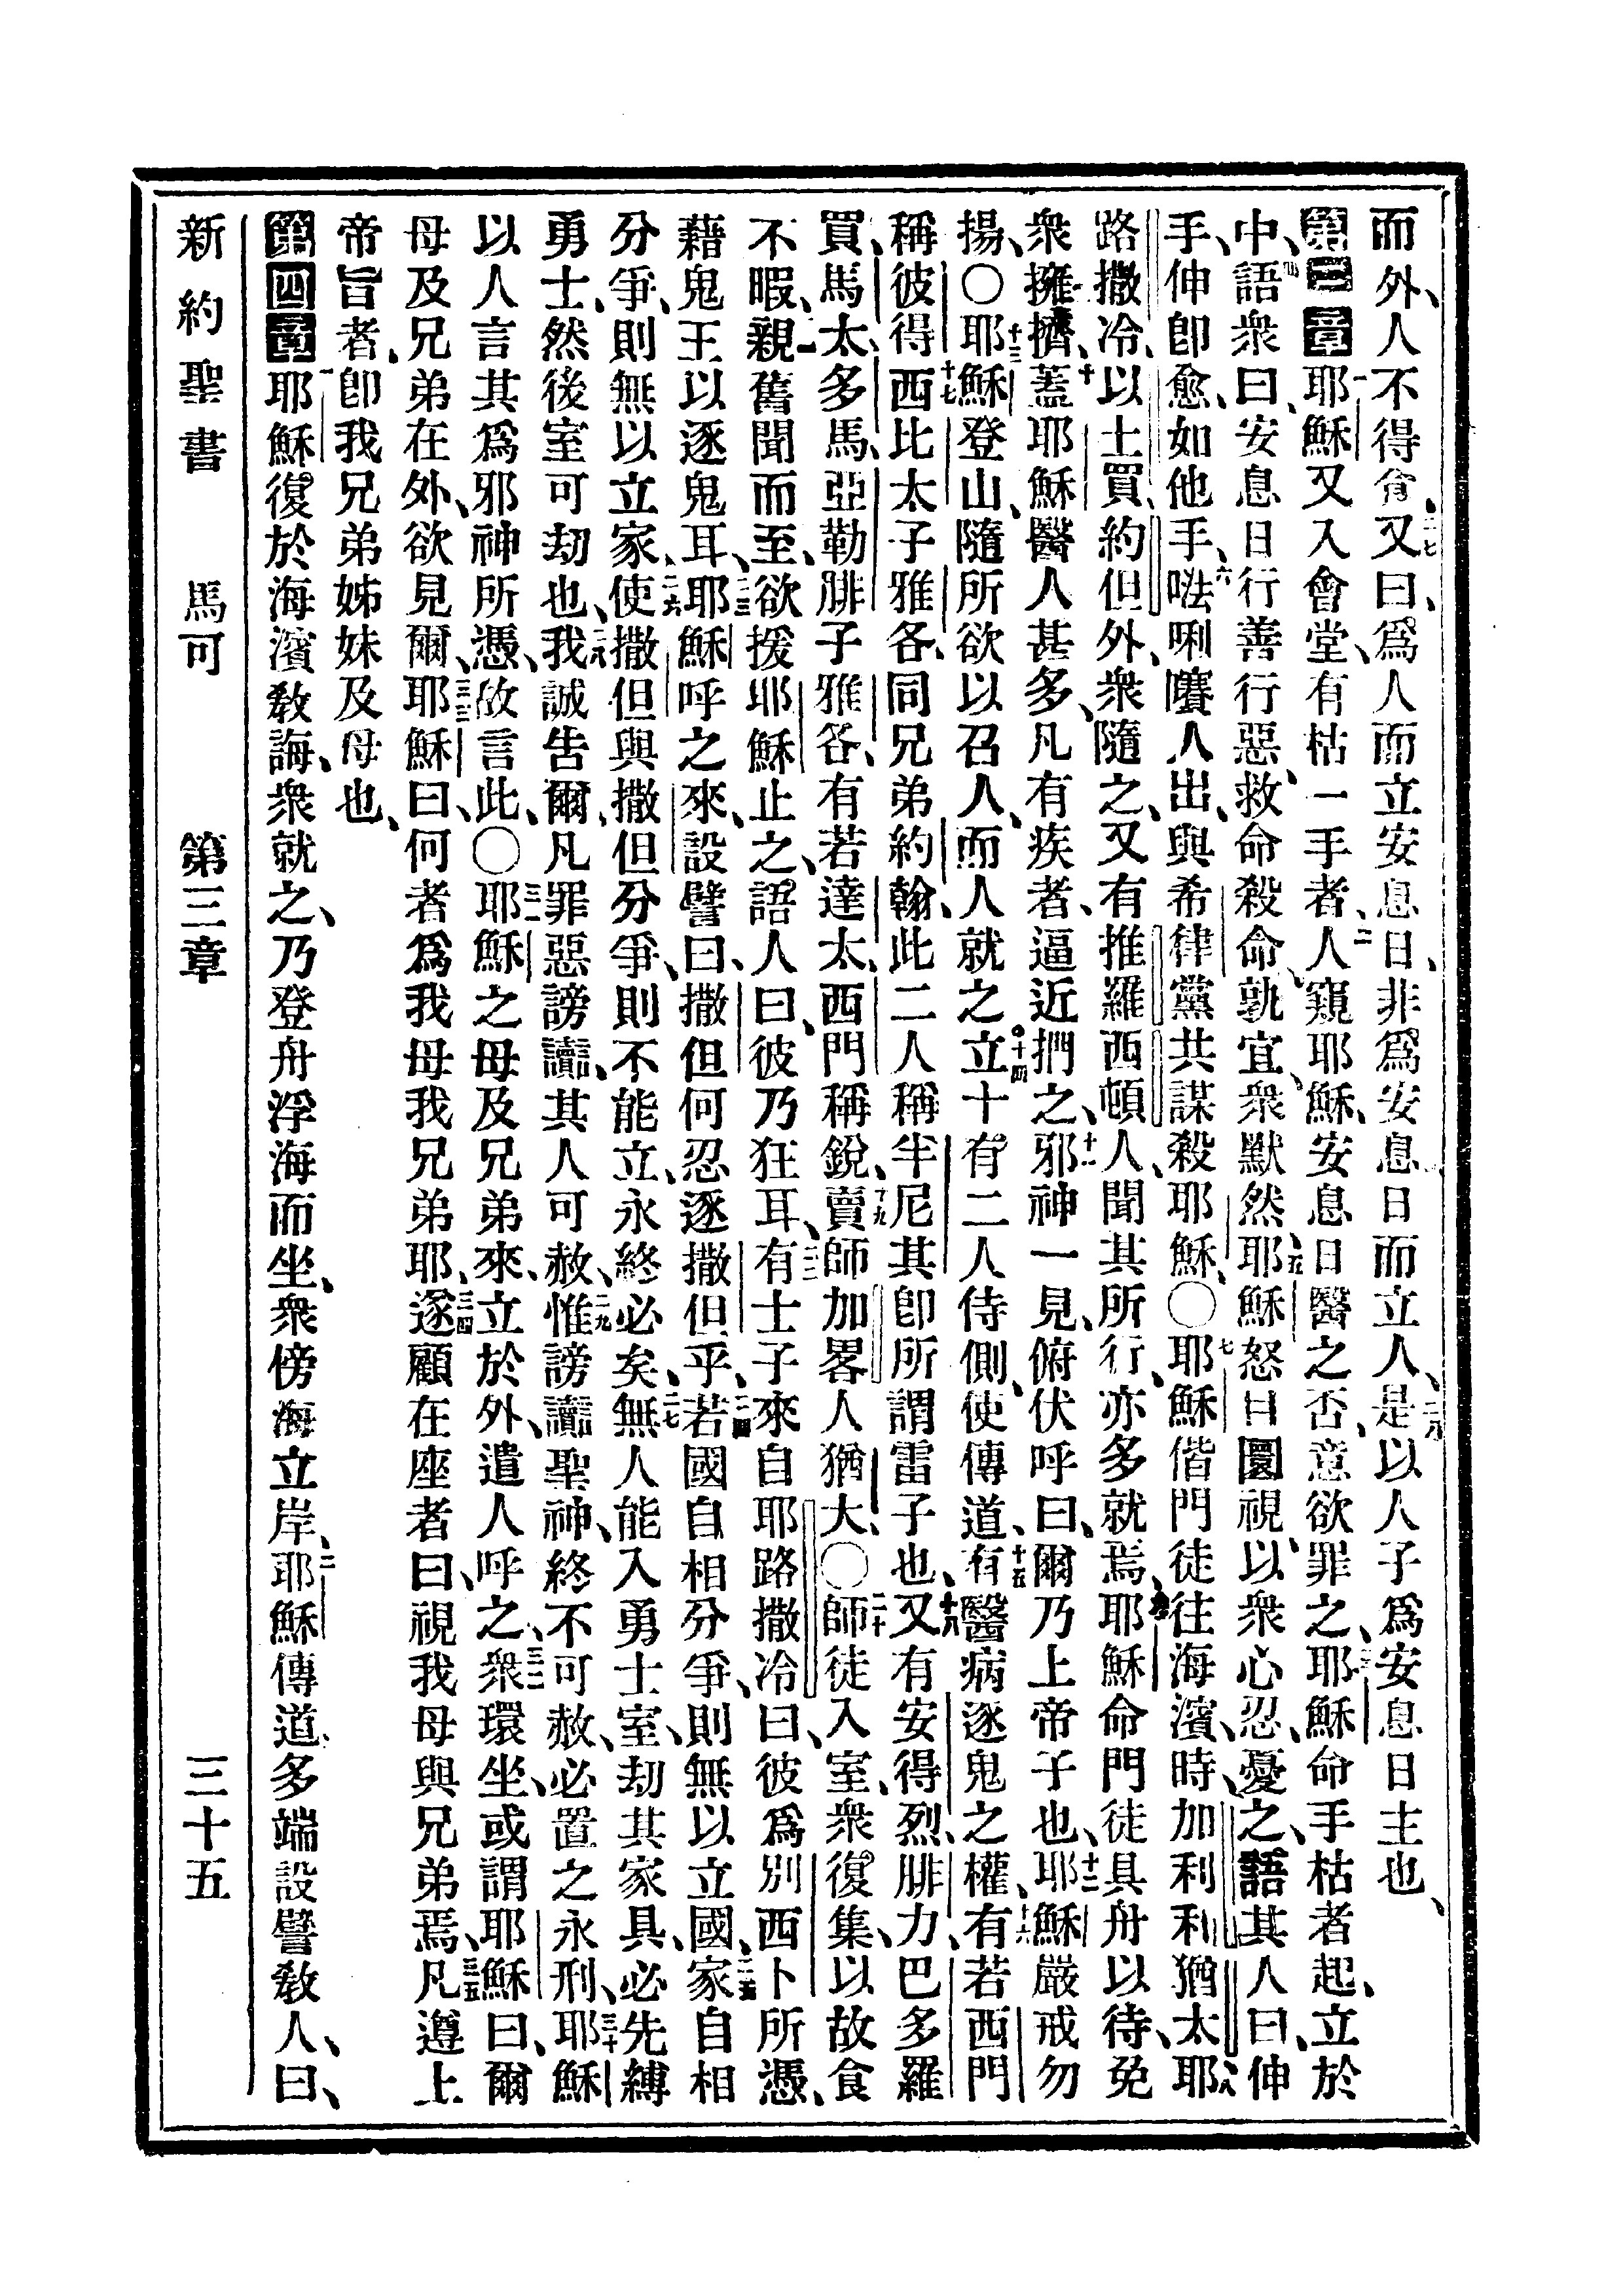 而外、人不得食、二七又曰、爲人而立安息日、非爲安息日而立人、二八是以人子爲安息日主也、
第三章一耶穌又入會堂、有枯一手者、二人窺耶穌、安息日醫之否、意欲罪之、三耶穌命手枯者起、立於
中、四語衆曰、安息日行善行惡、救命殺命、孰宜、衆默然、五耶穌怒目圜視、以衆心忍、憂之、語其人曰、伸
手、伸卽愈、如他手、六𠵽唎㘔人出、與希律黨共謀殺耶穌、〇七耶穌偕門徒往海濱、時、加利利猶太八耶
路撒冷、以土買、約但外、衆隨之、又有推羅西頓人、聞其所行、亦多就焉、九耶穌命門徒具舟以待、免
衆擁擠、十蓋耶穌醫人甚多、凡有疾者、逼近捫之、十一邪神一見、俯伏呼曰、爾乃上帝子也、十二耶穌嚴戒勿
揚、〇十三耶穌登山、隨所欲以召人、而人就之、十四立十有二人侍側、使傳道、十五有醫病逐鬼之權、十六有若西門
稱彼得、十七西比太子雅各、同兄弟約翰、此二人稱半尼其、卽所謂雷子也、十八又有安得烈、腓力、巴多羅
買、馬太、多馬、亞勒腓子雅各、有若達太、西門稱銳、十九賣師加畧人猶大、〇二十師徒入室、衆復集、以故食
不暇、二一親舊聞而至、欲援耶穌止之、語人曰、彼乃狂耳、二二有士子來自耶路撒冷曰、彼爲別西卜所憑、
藉鬼王以逐鬼耳、二三耶穌呼之來、設譬曰、撒但何忍逐撒但乎、二四若國自相分爭、則無以立國、二五家自相
分爭、則無以立家、二六使撒但與撒但分爭、則不能立、永終必矣、二七無人能入勇士室、劫其家具、必先縛
勇士、然後室可劫也、二八我誠告爾、凡罪惡謗讟、其人可赦、二九惟謗讟聖神、終不可赦、必置之永刑、三十耶穌
以人言其爲邪神所憑、故言此、〇三一耶穌之母及兄弟來、立於外、遣人呼之、三二衆環坐、或謂耶穌曰、爾
母及兄弟在外、欲見爾、三三耶穌曰、何者爲我母我兄弟耶、三四遂顧在座者曰、視我母與兄弟焉、三五凡遵上
帝旨者、卽我兄弟姊妹及母也、
第四章一耶穌復於海濱敎誨、衆就之、乃登舟浮海而坐、衆傍海立岸、二耶穌傳道、多端設譬敎人、曰、
新約聖書 馬可 第三章 三十五